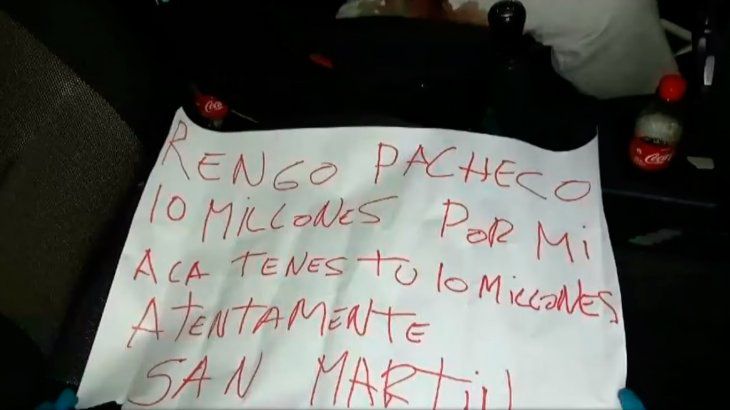 RENGO PACHECO
10 MILLONES POR MI
ACA TENES TU 10 MILLONES
ATENTAMENTE
SAN MARTIN
Coca
Coca